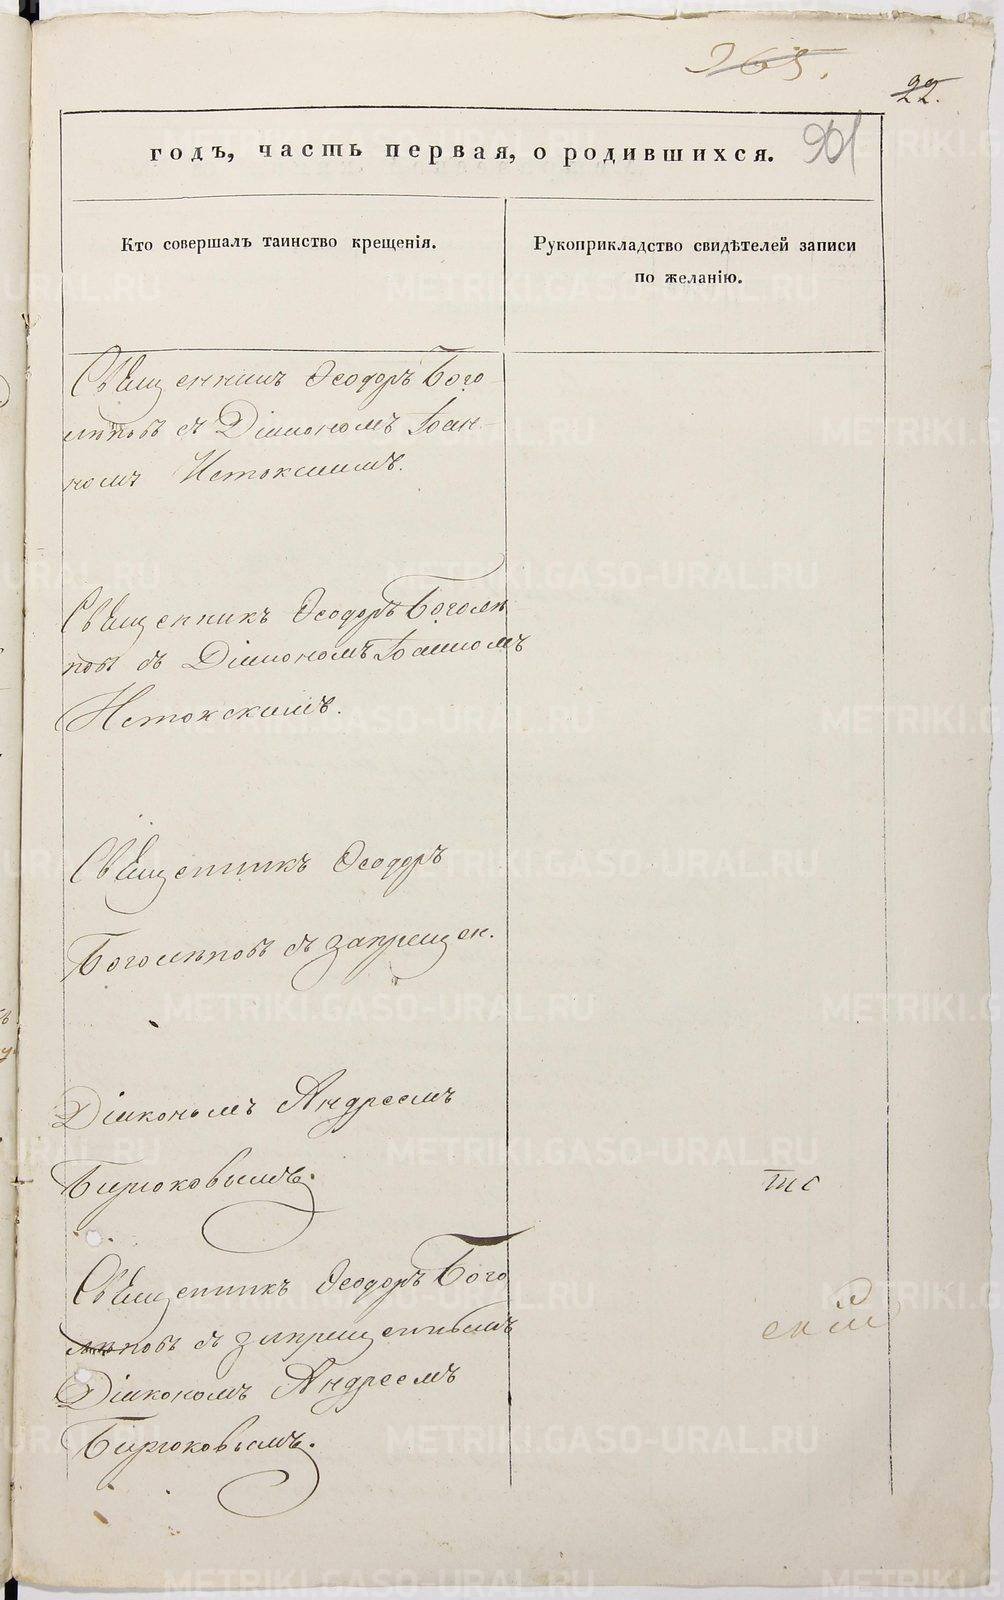 265.
22.
901
годъ, часть первая, о родившихся.
Кто совершалъ таинство крещенія.
Рукоприкладство свидѣтелей записи
по желанію.
Священникъ Ѳеодоръ Бого-
лѣповъ съ Діакономъ Іоан-
номъ Истокскимъ.
Священникъ Ѳеодоръ Боголѣ
повъ съ Діакономъ Іоанномъ
Истокскимъ.
Священникъ Ѳеодоръ
Боголѣповъ съ запрещен.
Діакономъ Андреемъ
Бирюковымъ.
тс
Священникъ Ѳеодоръ Бого
лѣповъ съ запрещеннымъ
скій
Діакономъ Андреемъ
Бирюковымъ.
METRIKI.GASO-URAL.RU